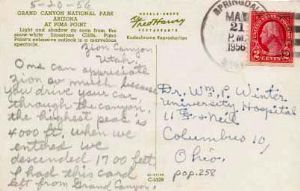 5-20-56
GRAND CANYON NATIONAL PARK
ARIZONA
AT PIMA POINT
Light and shadow as seen from the
snow-white limestone Cliffs. Pima
Point's extensive outlook is a
Fred Harvey
Kodachrome Reproduction
Zion Canyon
Utah,
One can appreciate
Zion so much because
you drive your car
through the canyon,
the highest peak is
4000 ft. when we
entered we
descended 1700 feet.
I had this card
left from Grand Canyon,
SPRINGDALE
MAY
21
P.M.
1956
2 CENTS 2
Dr. Wm. P. Winter
University Hospital
11 & Neil
Columbus 10,
Ohio.
pop. 258